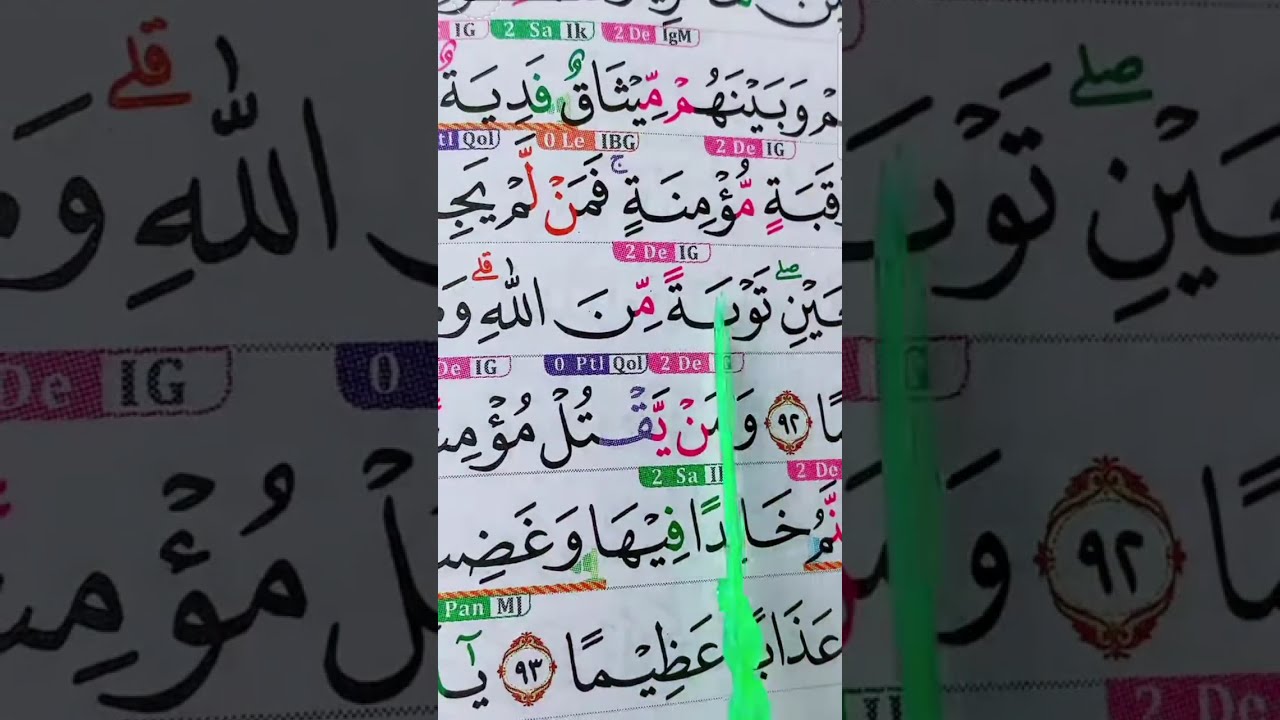 IG 2 Sa Ik 2 De IgM
وَبَيْنَهُمْ مِّيْثَاقٌ فَدِيَةٌ
Qol 0 Le IBG 2 De IG
مُّؤْمِنَةٍ ۚ فَمَنْ لَّمْ يَجِ
2 De IG
تَوْبَةً مِّنَ اللّٰهِ ۗ وَ
De IG 0 Ptl Qol 2 De IG
مًا ٩٢ وَمَنْ يَّقْتُلْ مُؤْمِنً
2 Sa Ik 2 De
خَالِدًا فِيْهَا وَغَضِبَ
Pan MJ
عَذَابًا عَظِيْمًا ٩٣ يٰٓ